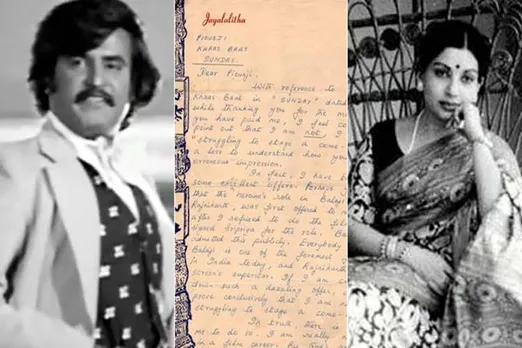 Jayalalitha
PIOUSJI
KHAAS BAAT
SUNDAY.
Dear Piousji,
With reference to
Khaas Baat in "SUNDAY" dated
while thanking you for the
you have paid me, I feel
point out that I am not
"struggling to stage a come
a loss to understand how you
erroneous impression.
In fact, I have
some excellent offers. Perhaps
that the heroine's role in Balaji
Rajnikanth, was first offered to
after I refused to do the film
signed Sripriya for the role.
admitted this publicly. Everybody
Balaji is one of the foremost
in India today, and Rajnikanth
screen's superstar. If I am
down such a dazzling offer,
prove conclusively that I am
struggling to stage a come
In truth, there is
me to do so. I am really
in a film career. By